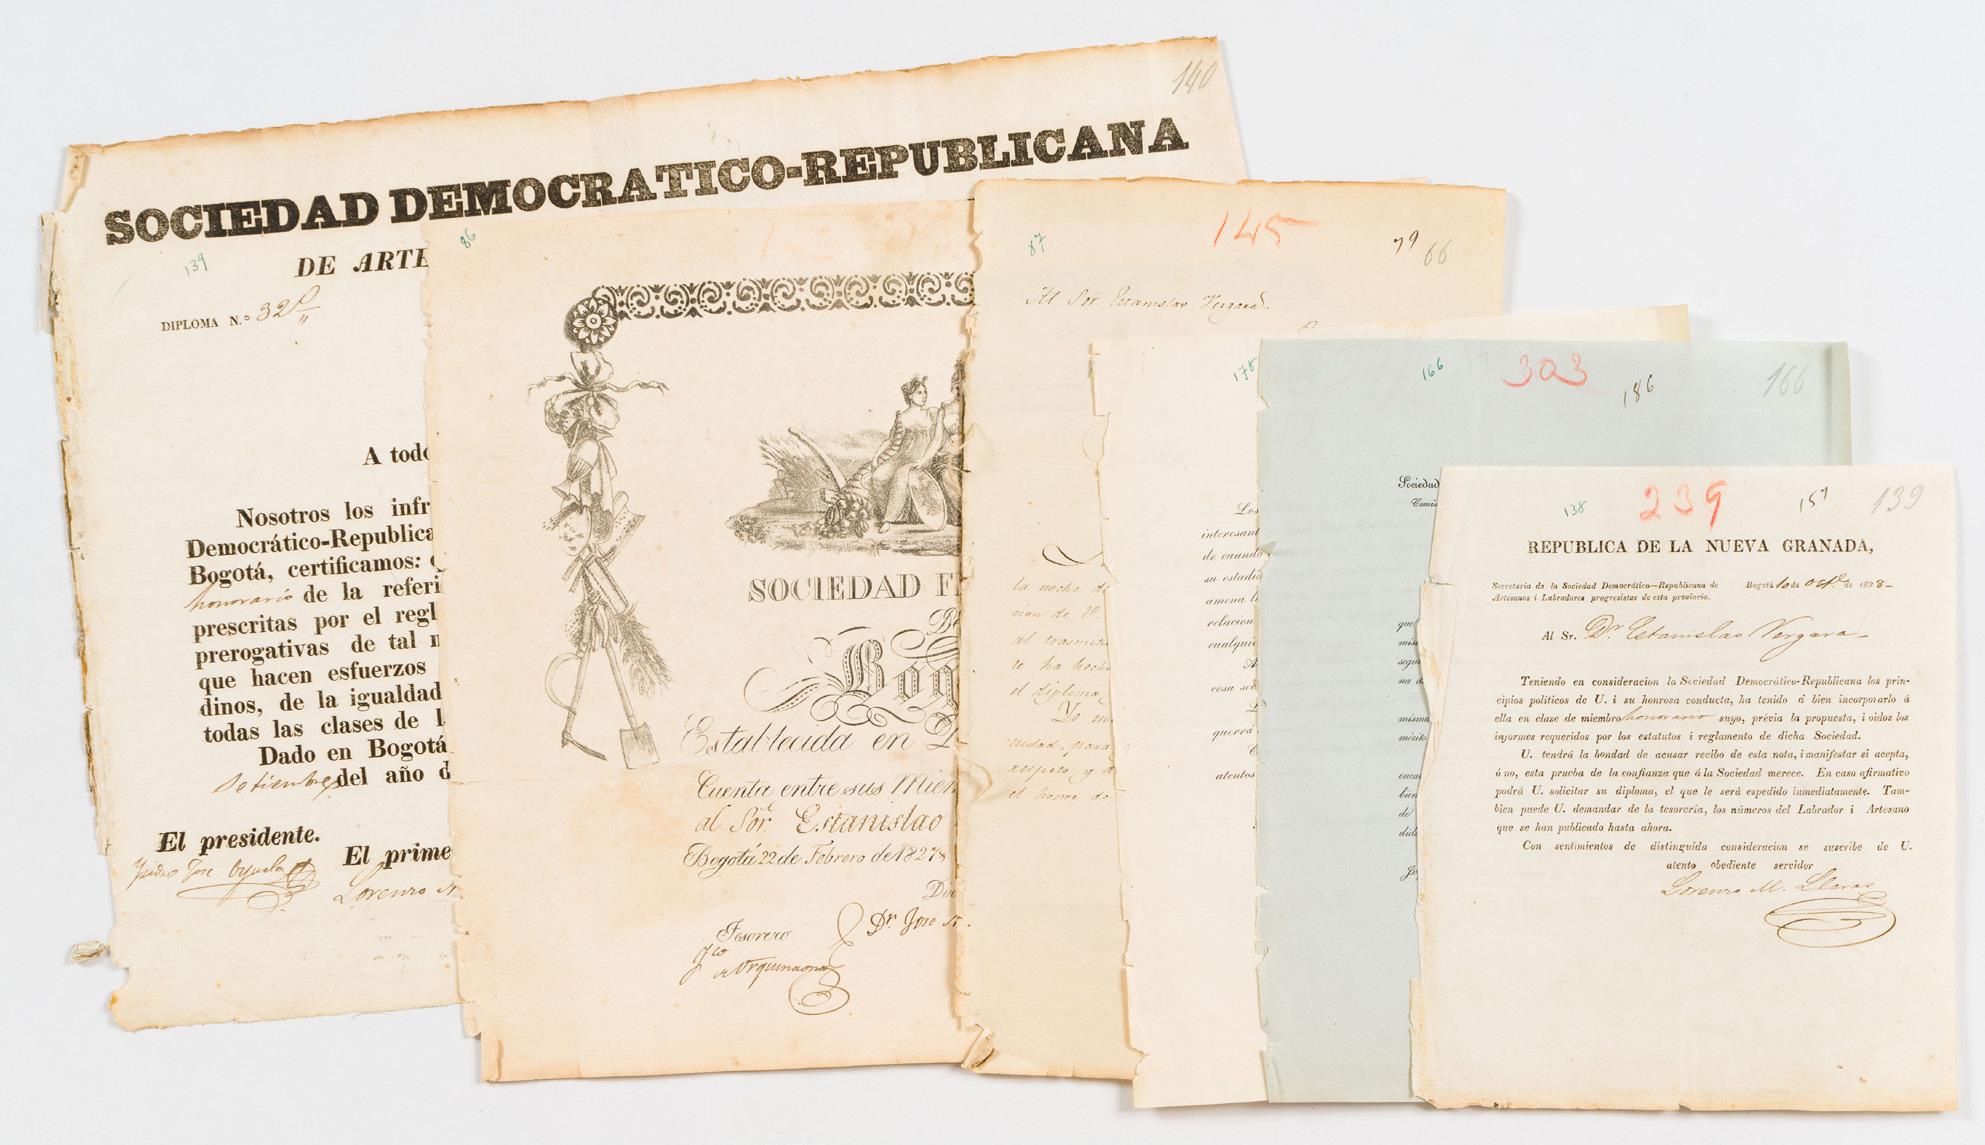 140
SOCIEDAD DEMOCRATICO-REPUBLICANA
139
DE ARTE
DIPLOMA N.º 32
A todo
Nosotros los infr
Democrático-Republica
Bogotá, certificamos:
honorario de la referi
prescritas por el regl
prerogativas de tal
que hacen esfuerzos
dinos, de la igualdad
todas las clases de l
Dado en Bogotá
Setiembre del año d
El presidente.
Isidro José Orjuela
El prime
Lorenzo M
86
SOCIEDAD F
Bog
Establecida en
Cuenta entre sus Miem
al Sor. Estanislao
Bogotá 22 de Febrero de 1827
Dir
Tesorero
Dr. José
87
145
79
66
Al Sor. Estanislao Vergara
la noche de
cion de
al trasmit
le ha hecho
el diploma
Yo
nidad, para
respeto y
el honor de
178
Los
interesant
de cuando
su estudio
amena l
relacion
cualqui
A
cosa se
guerrá
atentos
166
303
186
166
Sociedad
Comis
que
mis
segu
na d
misma
mérit
enca
bien
de
did
239
138
157
139
REPUBLICA DE LA NUEVA GRANADA,
Secretaría de la Sociedad Democrático—Republicana de
Artesanos i Labradores progresistas de esta provincia.
Bogotá 10 de Oct.e de 1838-
Al Sr. Dr. Estanislao Vergara-
Teniendo en consideracion la Sociedad Democrático-Republicana los prin-
cipios políticos de U. i su honrosa conducta, ha tenido á bien incorporarlo á
ella en clase de miembro honorario suyo, prévia la propuesta, i oidos los
informes requeridos por los estatutos i reglamento de dicha Sociedad.
U. tendrá la bondad de acusar recibo de esta nota, i manifestar si acepta,
ó no, esta prueba de la confianza que á la Sociedad merece. En caso afirmativo
podrá U. solicitar su diploma, el que le será espedido inmediatamente. Tam-
bien puede U. demandar de la tesorería, los números del Labrador i Artesano
que se han publicado hasta ahora.
Con sentimientos de distinguida consideracion se suscribe de U.
atento obediente servidor
Lorenzo M. Lleras